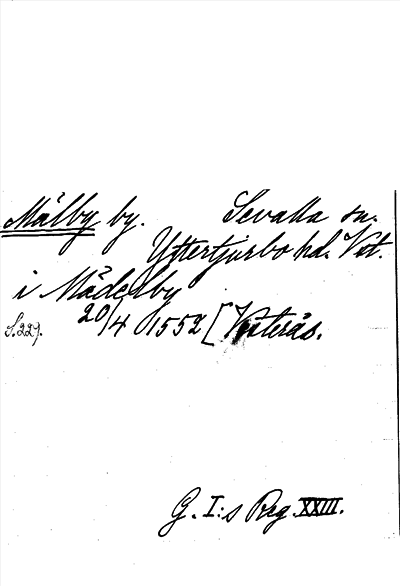 Målby by. Sevalla sn.
Yttertjurbo hd. Vst.
i Mådelby
20/4 1552 [Västerås.
S. 227.
G. I:s Reg. XXIII.